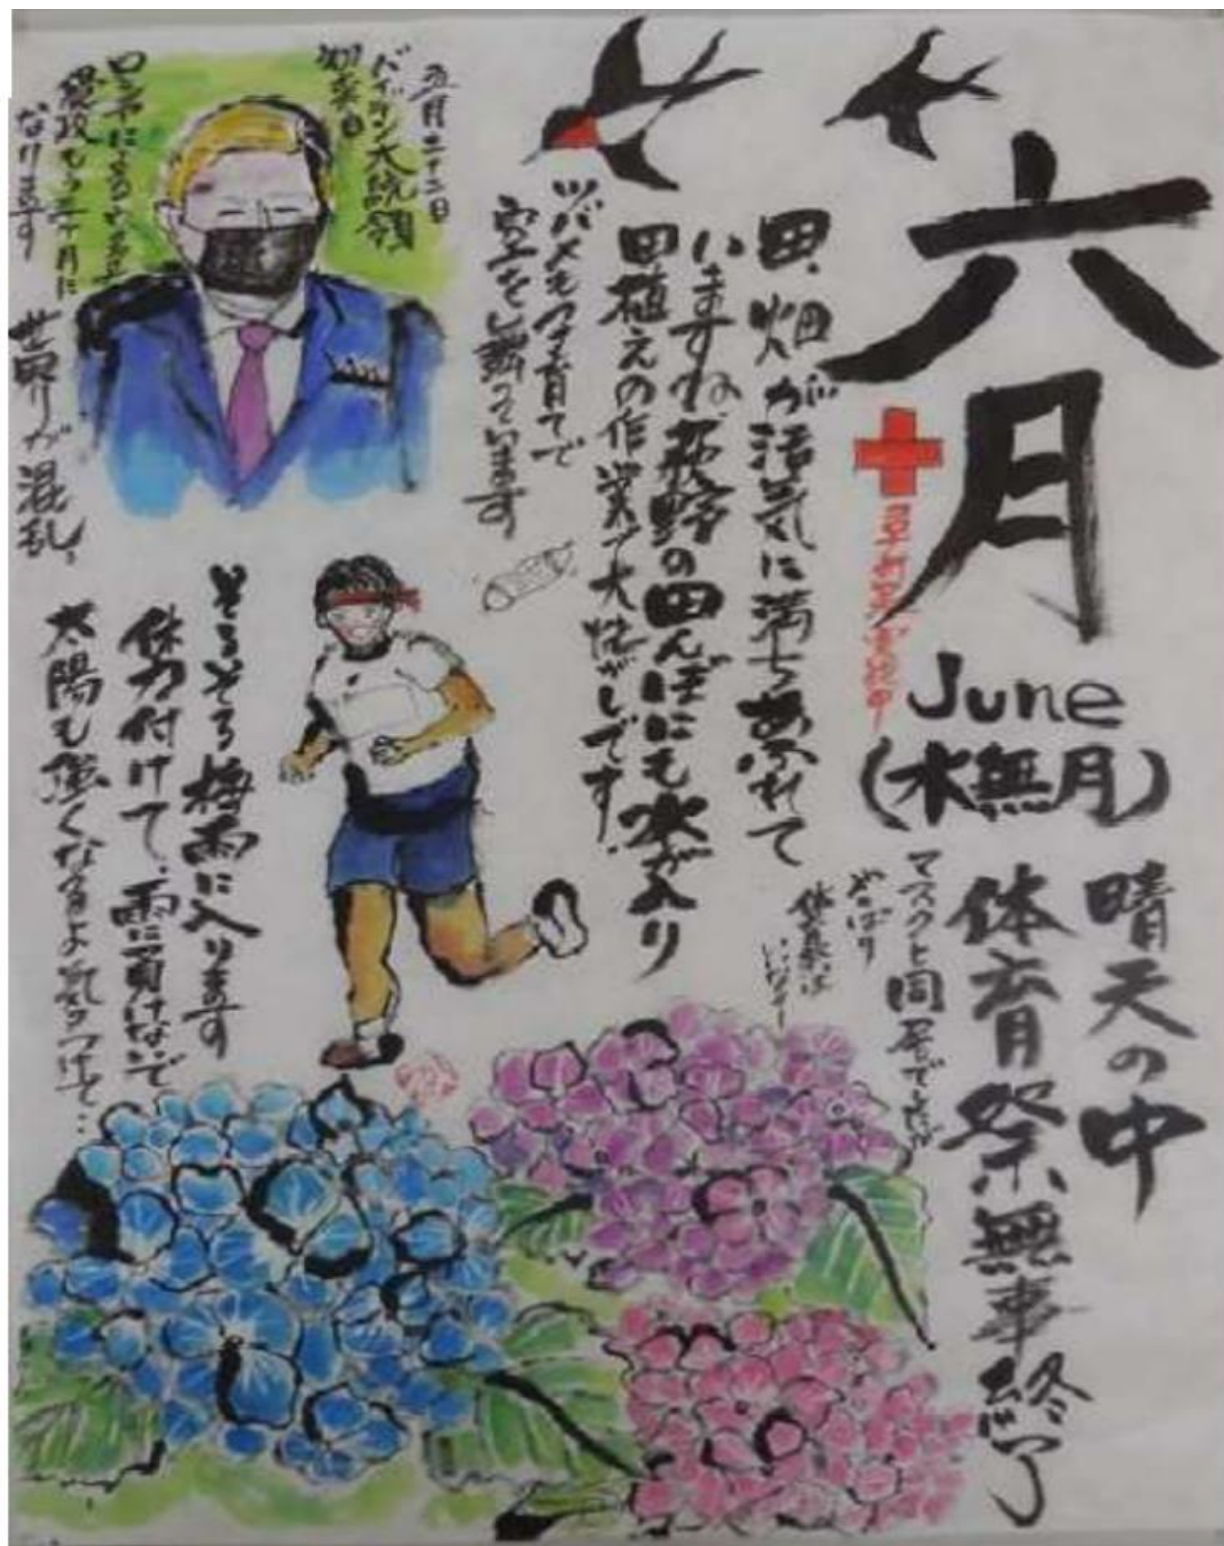 六月
June
(水無月)
晴天の中
体育祭無事終了
マスクと同居でしたが
やっぱり
体育祭は
いいなー
田、畑が活気に満ちあふれて
いますね。萩野の田んぼにも水が入り
田植えの作業で大忙がしです。
ツバメも子育てで
空を舞っています
五月二十二日
バイデン大統領
初来日
ロシアによるウクライナ
侵攻も三ヶ月に
なります
世界が混乱、
そろそろ梅雨に入ります
体力付けて、雨に負けないで
太陽も強くなるよ気をつけて…